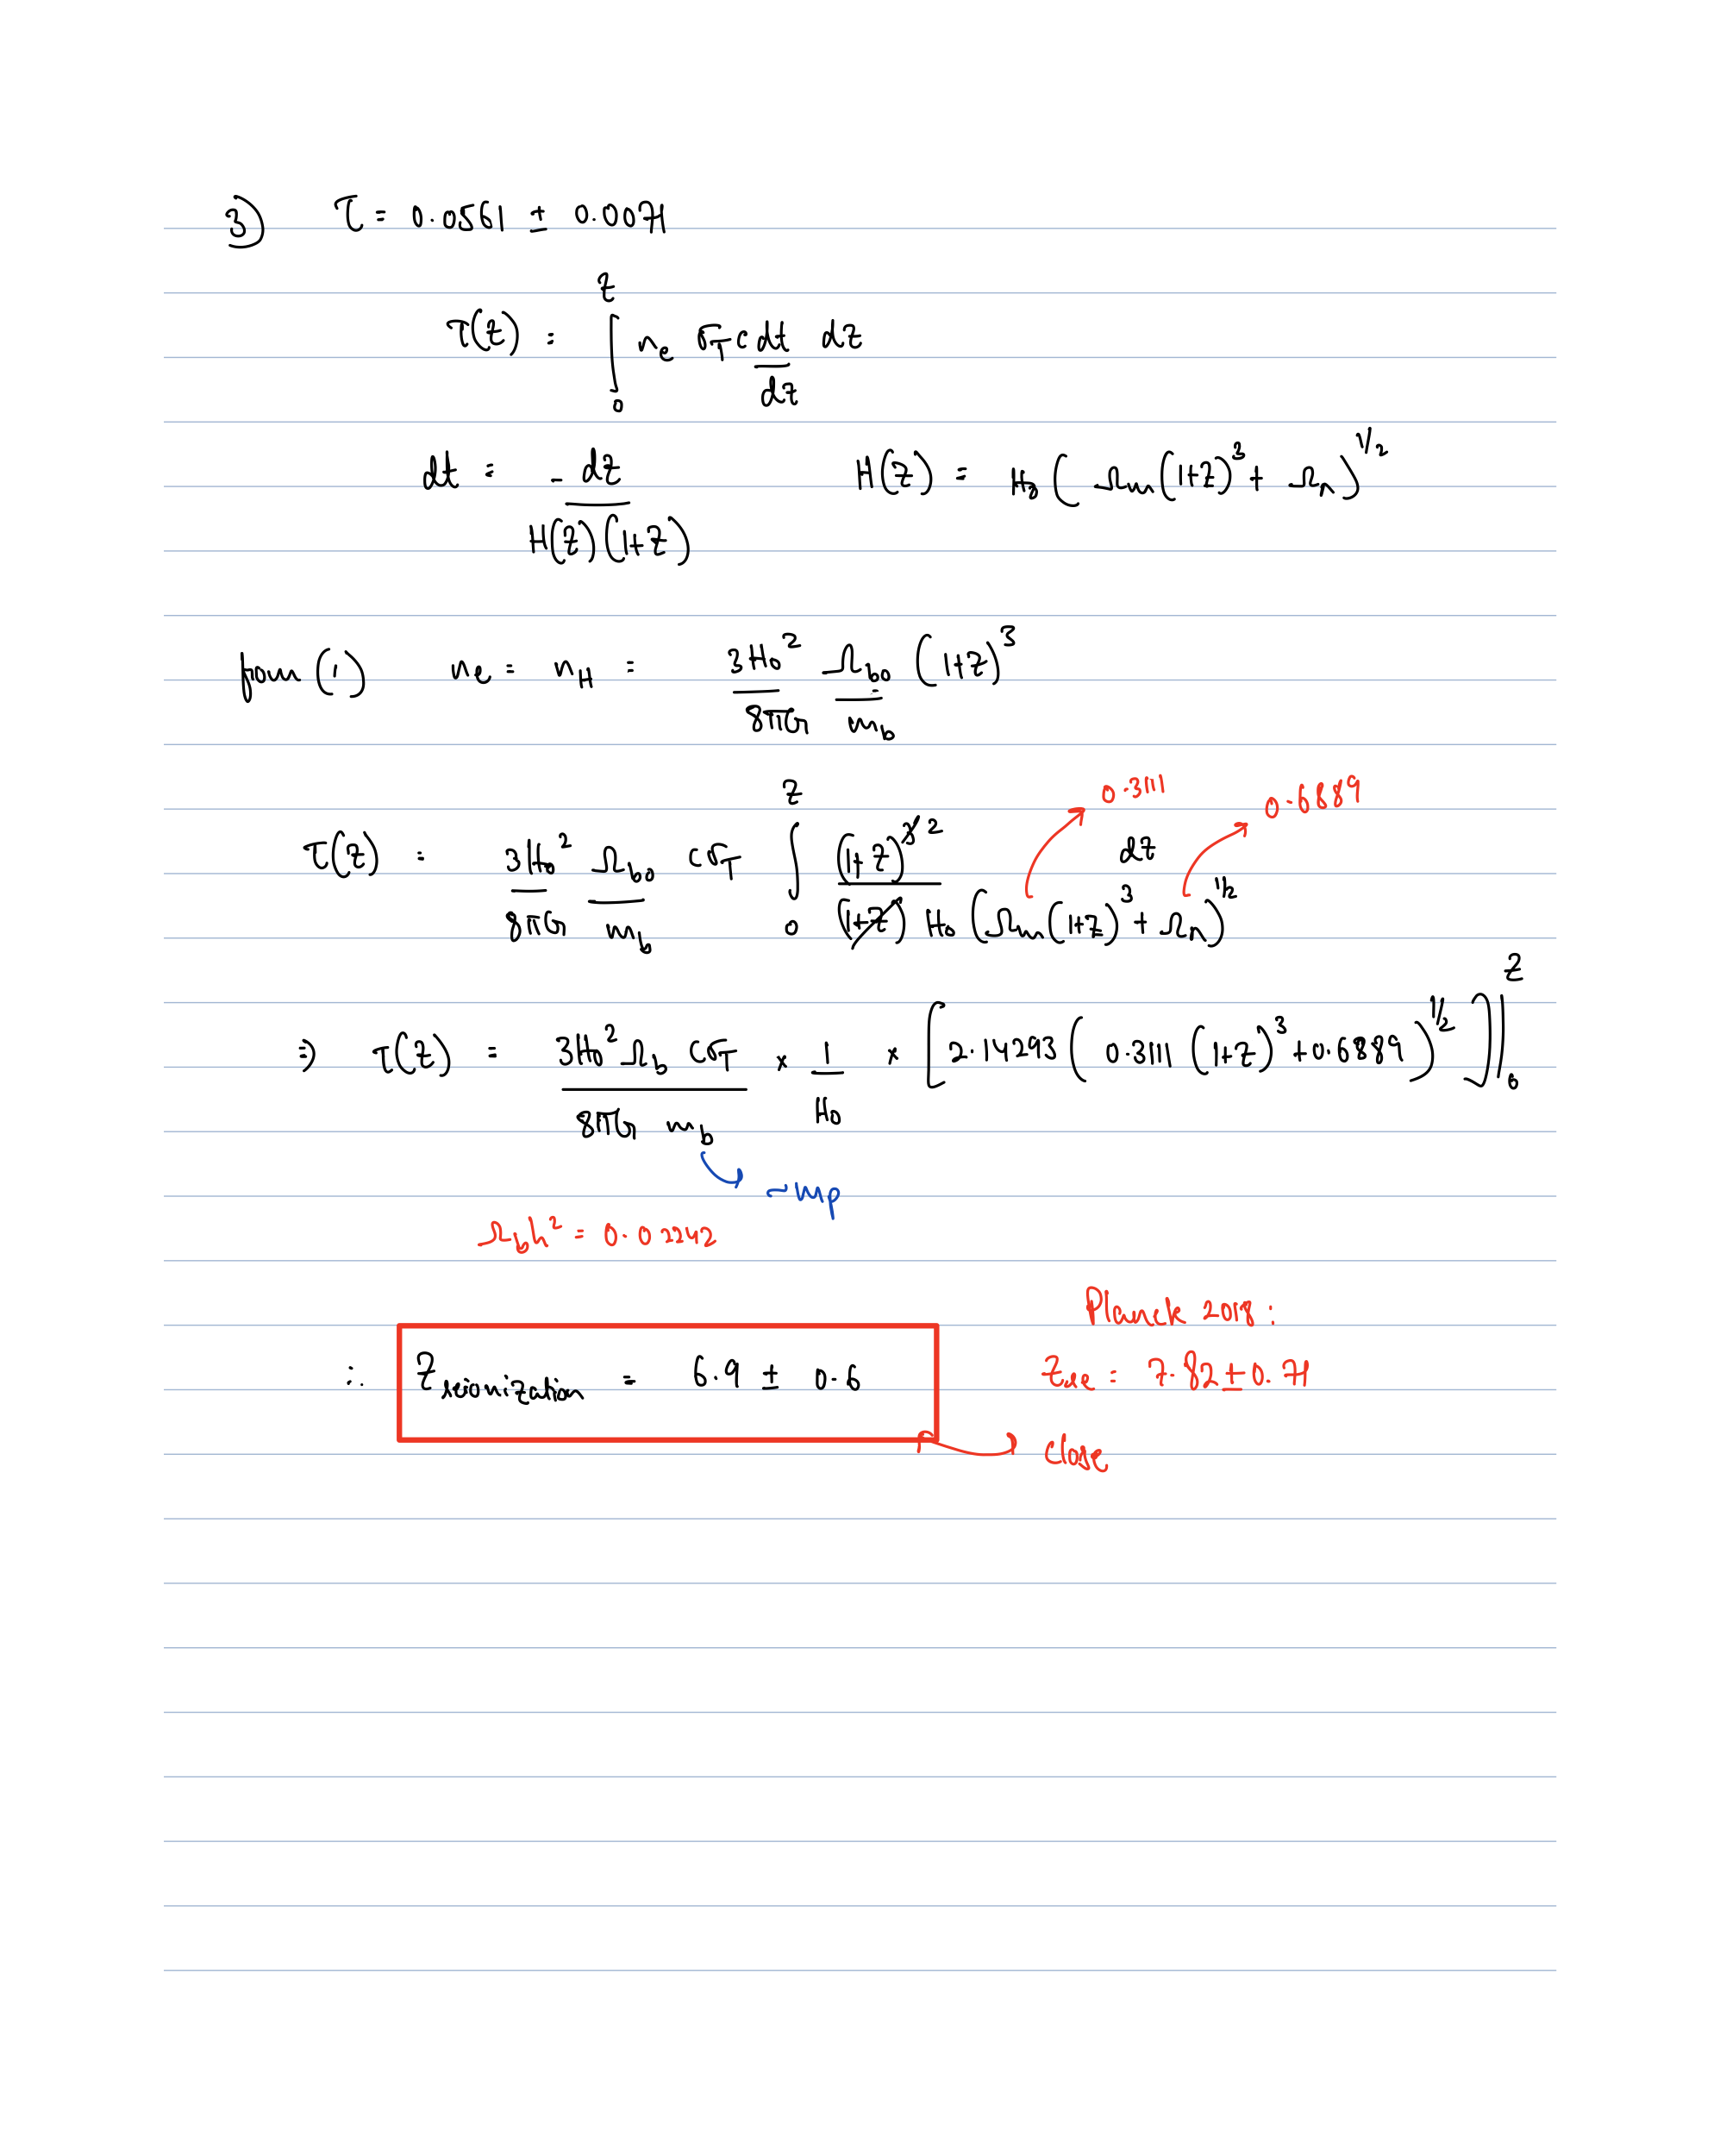 3) τ = 0.0561 ± 0.0071
τ(z) = ∫₀ᶻ nₑ σ_T c dt/dz dz
dt = - dz / H(z)(1+z)    H(z) = H₀ (Ωm(1+z)³ + Ω_Λ)^{1/2}
from (1) nₑ = n_H = 3H₀²/8πG Ω_b0/m_b (1+z)³
0.3111    0.6889
τ(z) = 3H₀²/8πG Ω_b0/m_b cσ_T ∫₀ᶻ (1+z)^{3̸ 2} / (1+z) H₀ (Ωm(1+z)³ + Ω_Λ)^{1/2} dz
⇒ τ(z) = 3H₀² Ω_b cσ_T / 8πG m_b × 1/H₀ × [2.14293 (0.3111 (1+z)³ + 0.6889)^{1/2}]|₀ᶻ
~mp
Ω_b h² = 0.02242
Planck 2018:
∴ Z_reionization = 6.9 ± 0.6    Z_re = 7.82 ± 0.71
Close